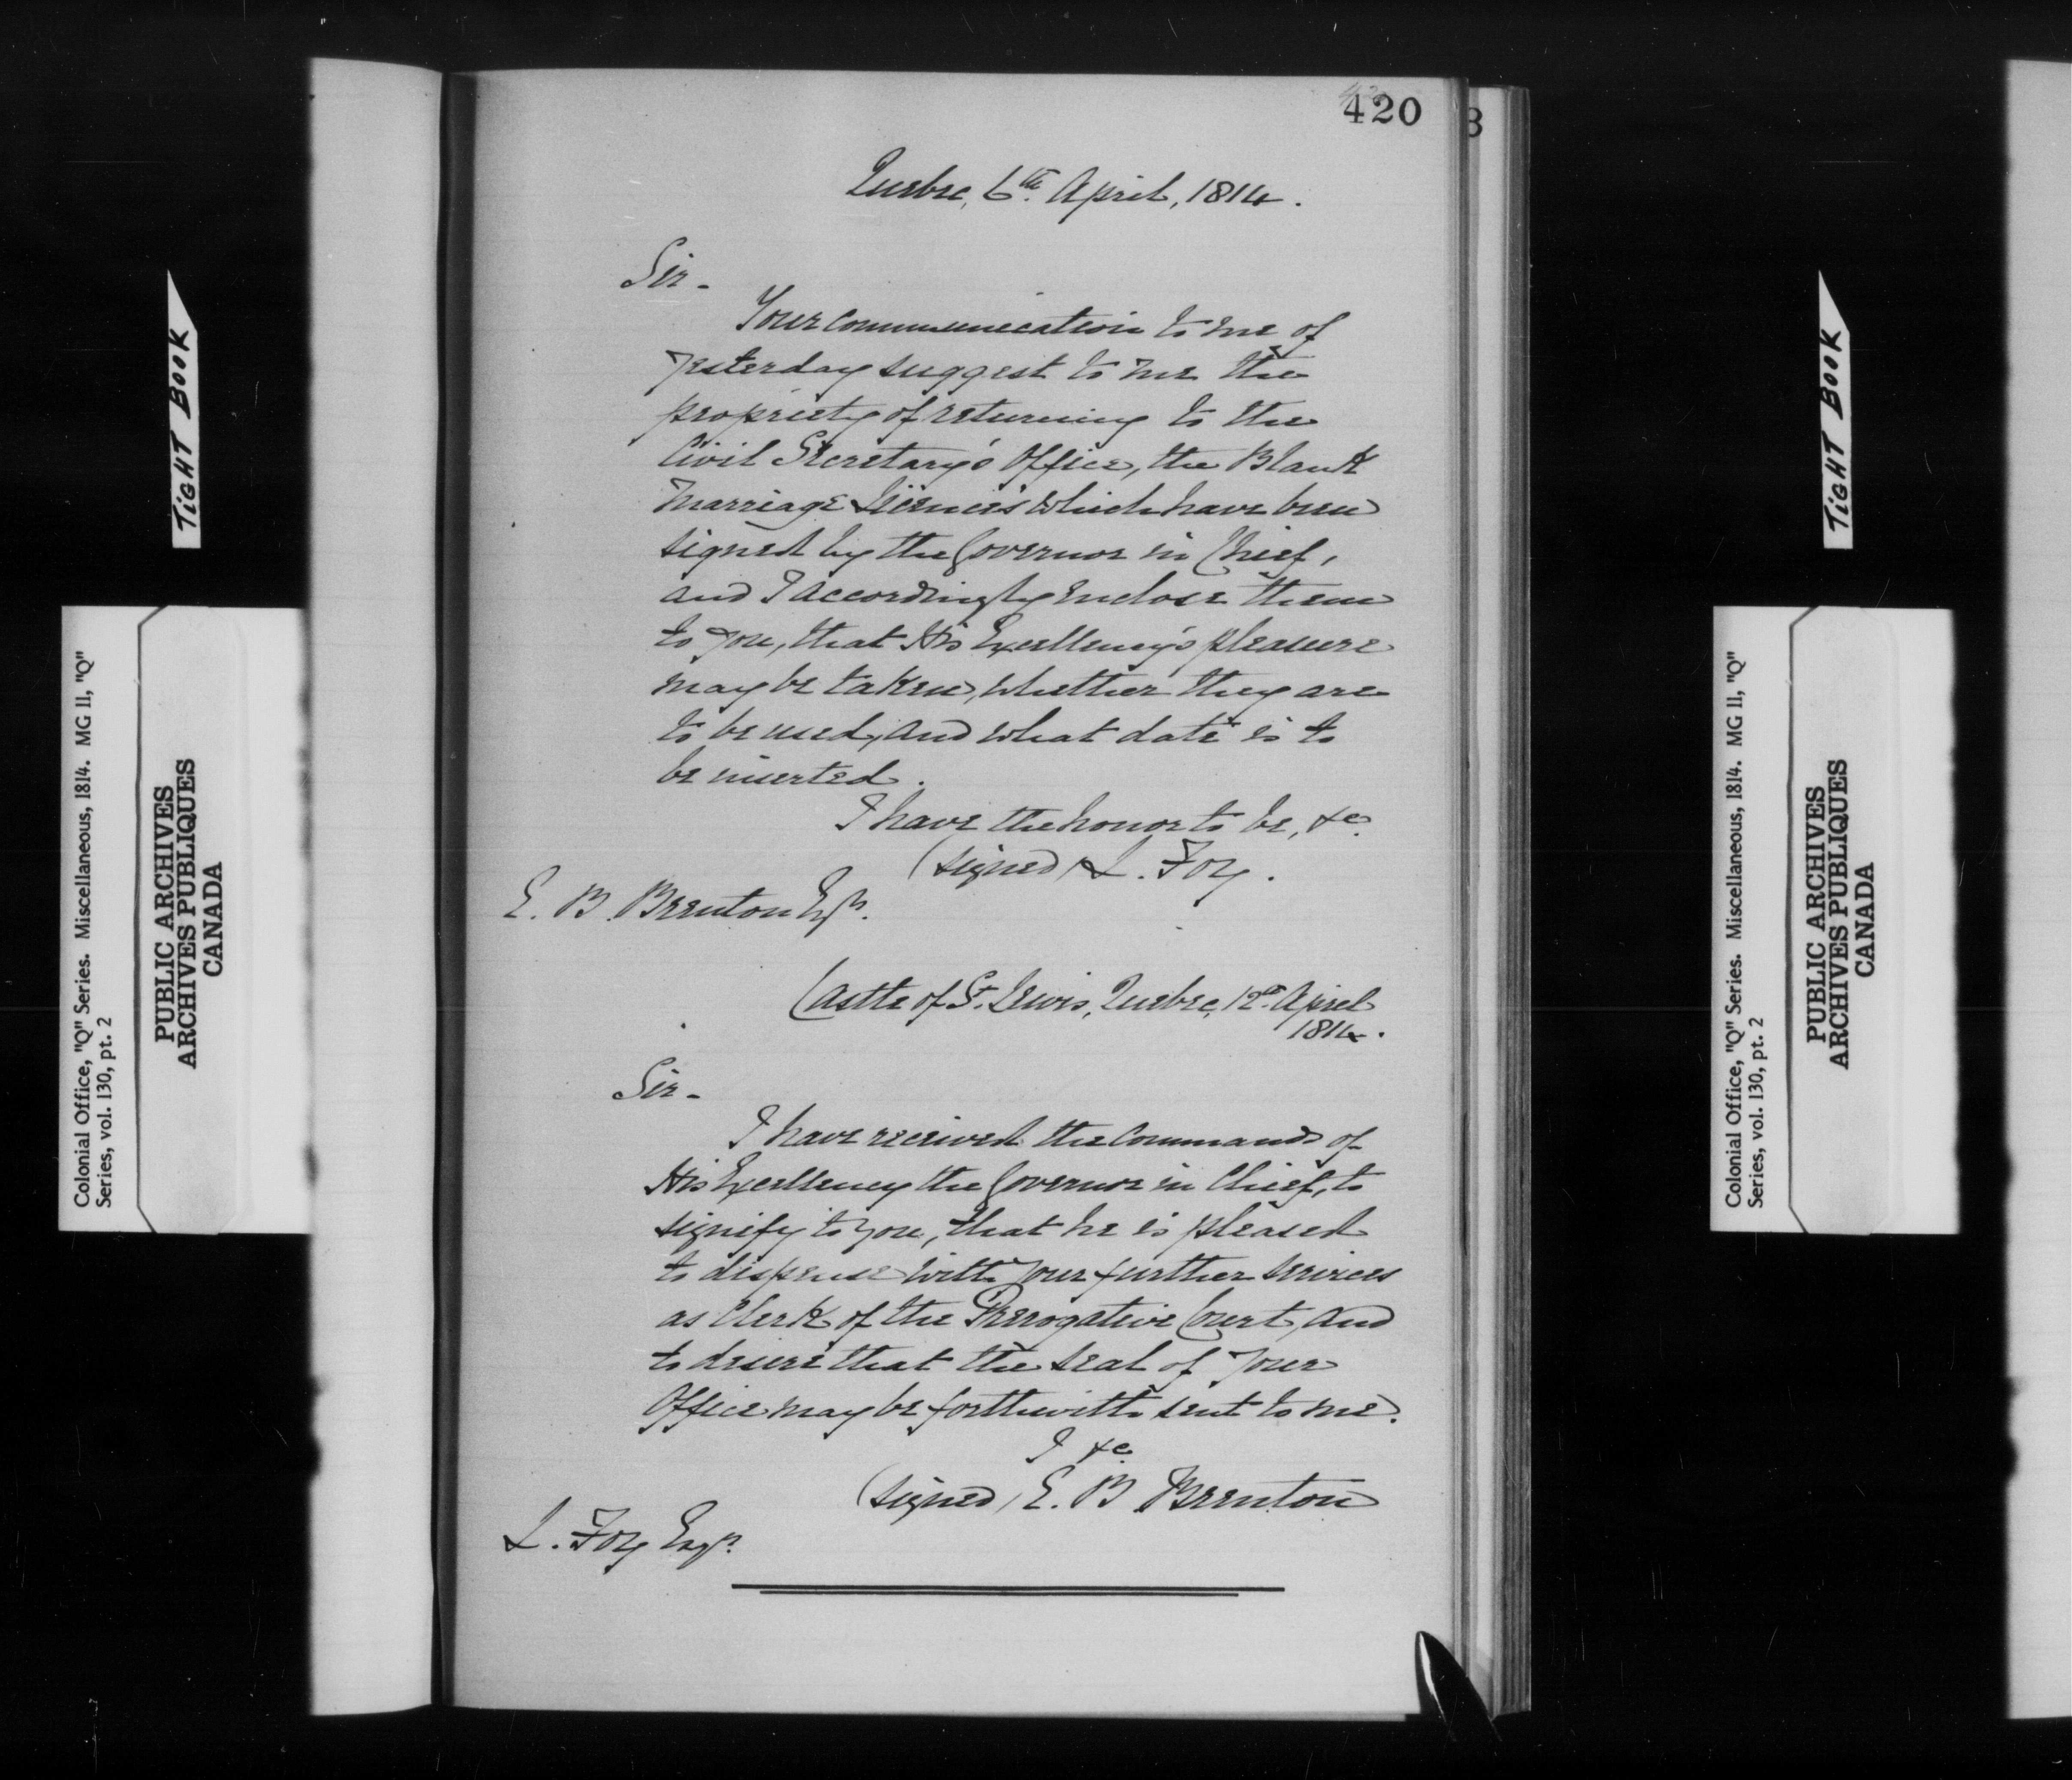 420
3
Quebec, 6th April, 1814.
Sir -
Your communication to me of
yesterday suggest to me the
propriety of returning to the
Civil Secretary's Office, the Blank
Marriage Licences which have been
signed by the Governor in Chief,
and I accordingly enclose them
to you, that His Excellency's pleasure
may be taken, whether they are
to be used, and what date is to
be inserted.
I have the honor to be, &c
(signed) L. Foy.
E. B. Brenton Esqr.
Castle of St. Lewis, Quebec, 12th April
1814.
Sir -
I have received the Commands of
His Excellency the Governor in Chief, to
signify to you, that he is pleased
to dispense with your further services
as Clerk of the Prerogative Court, and
to desire that the seal of your
Office may be forthwith sent to me.
I &c
(signed) E. B. Brenton
L. Foy Esqr.
TIGHT BOOK
Colonial Office, "Q" Series. Miscellaneous, 1814. MG 11, "Q"
Series, vol. 130, pt. 2
PUBLIC ARCHIVES
ARCHIVES PUBLIQUES
CANADA
TIGHT BOOK
Colonial Office, "Q" Series. Miscellaneous, 1814. MG 11, "Q"
Series, vol. 130, pt. 2
PUBLIC ARCHIVES
ARCHIVES PUBLIQUES
CANADA